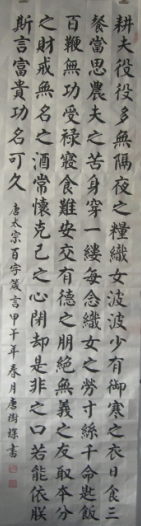 耕夫役役多無隔夜之糧織女波波少有御寒之衣日食三
餐當思農夫之苦身穿一縷每念織女之勞寸絲千命匙飯
百鞭無功受禄寢食難安交有德之朋絕無義之友取本分
之財戒無名之酒常懷克己之心閉却是非之口若能依朕
斯言富貴功名可久
唐太宗百字箴言甲午年春月唐樹蝶書